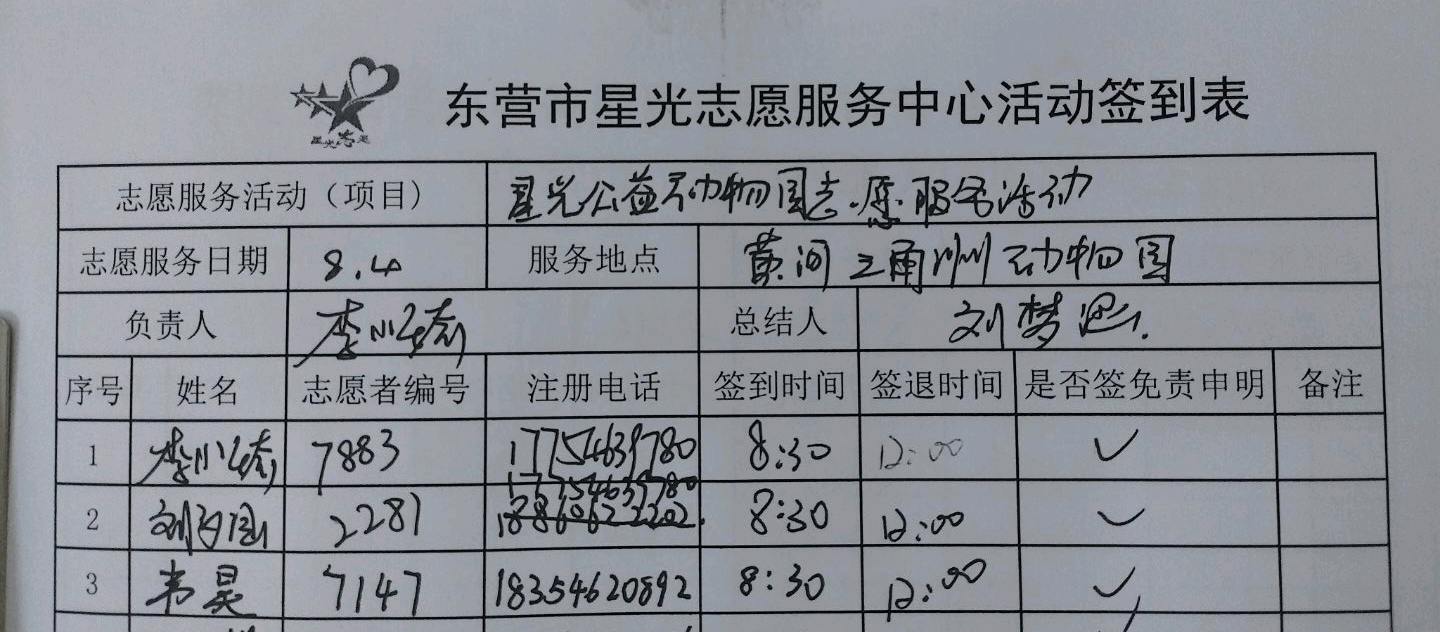 星光志愿
东营市星光志愿服务中心活动签到表
志愿服务活动（项目） 星光公益动物园志愿服务活动
志愿服务日期 8.4 服务地点 黄河三角洲动物园
负责人 李小 总结人 刘梦思
序号 姓名 志愿者编号 注册电话 签到时间 签退时间 是否签免责申明 备注
1 李小 7883 17754639780 8:30 12:00 ✓
17754639780
2 刘 2281 8:30 12:00 ✓
3 韦昊 7147 18354620892 8:30 12:00 ✓